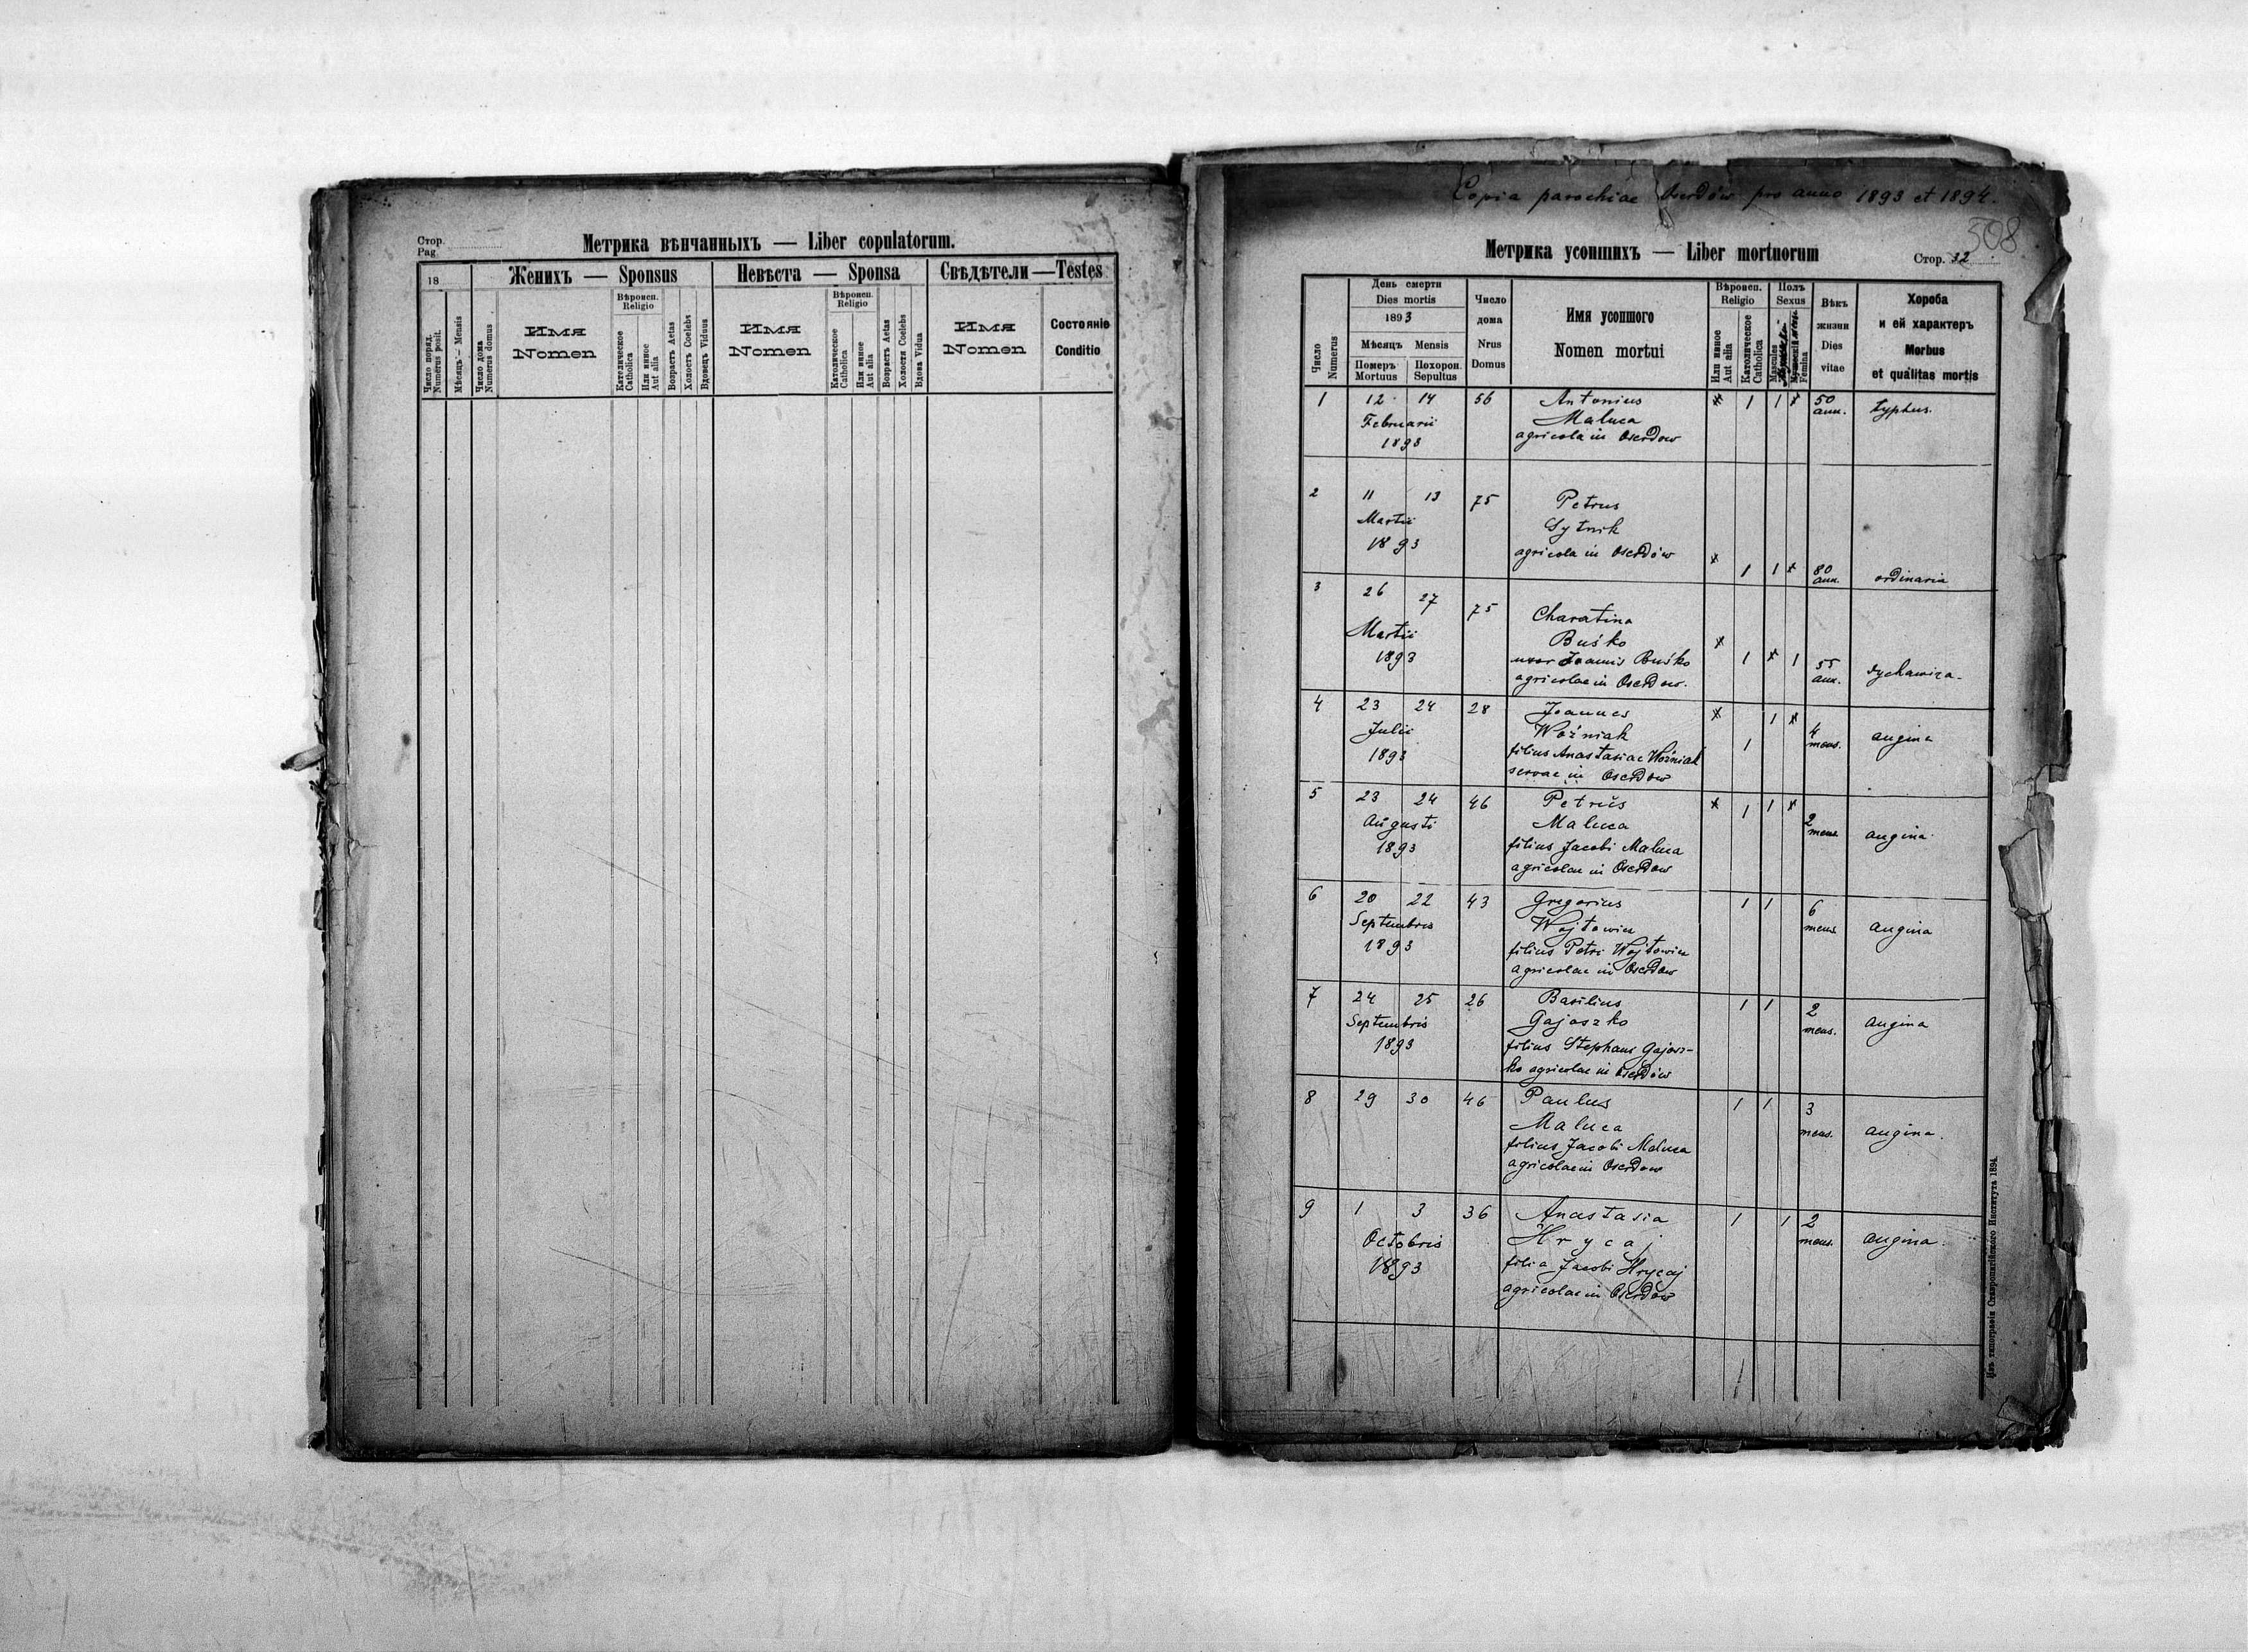 Стор.
Pag.
Метрика вѣнчанныхъ — Liber copulatorum.
18
Женихъ — Sponsus
Невѣста — Sponsa
Свѣдѣтели — Testes
Число поряд.
Numerus posit.
Мѣсяцъ — Mensis
Число дома
Numerus domus
Имя
Nomen
Вѣроисп.
Religio
Католическое
Catholica
Или инное
Aut alia
Возрастъ Aetas
Холостъ Coelebs
Вдовецъ Viduus
Имя
Nomen
Вѣроисп.
Religio
Католическое
Catholica
Или инное
Aut alia
Возрастъ Aetas
Холостя Coelebs
Вдова Vidua
Имя
Nomen
Состояніе
Conditio
Copia parochiae Oserdów pro anno 1893 et 1894.
508
Метрика усопшихъ — Liber mortuorum
Стор. 32
Число
Numerus
День смерти
Dies mortis
1893
Мѣсяцъ Mensis
Померъ
Mortuus
Похорон.
Sepultus
Число
дома
Nrus
Domus
Имя усопшого
Nomen mortui
Вѣроисп.
Religio
Или инное
Aut alia
Католическое
Catholica
Полъ
Sexus
Mascules
Femina
Вѣкъ
жизни
Dies
vitae
Хороба
и ей характеръ
Morbus
et qualitas mortis
1 12 14 56 Antonius x 1 1 x 50 typhus.
Februarii Maluca ann.
1893 agricola in Oserdow
2 11 13 75 Petrus
Martii Sytnik
1893 agricola in Oserdów x 1 1 x 80 ordinaria
ann.
3 26 27 75 Charatina
Martii Buśko x
1893 uxor Joannis Buśko 1 x 1 55 dychawica.
agricolae in Oserdow. ann.
4 23 24 28 Joannes x 1 x
Julii Woźniak 1 4 angina
1893 filius Anastasiae Woźniak mens.
servae in Oserdow
5 23 24 46 Petrus x 1 1 x
Augusti Maluca 2 angina.
1893 filius Jacobi Maluca mens.
agricolae in Oserdow
6 20 22 43 Gregorius 1 1 6
Septembris Wojtowicz mens. angina
1893 filius Petri Wojtowicz
agricolae in Oserdow
7 24 25 26 Basilius 1 1 2
Septembris Gajoszko mens. angina
1893 filius Stephani Gajosz-
ko agricolae in Oserdów
8 29 30 46 Paulus 1 1 3
Maluca mens. angina.
filius Jacobi Maluca
agricolae in Oserdow
9 1 3 36 Anastasia 1 1 2
Octobris Hrycaj mens. angina.
1893 filia Jacobi Hrycaj
agricolae in Oserdów
Изъ типографіи Ставропигійского Института 1894.